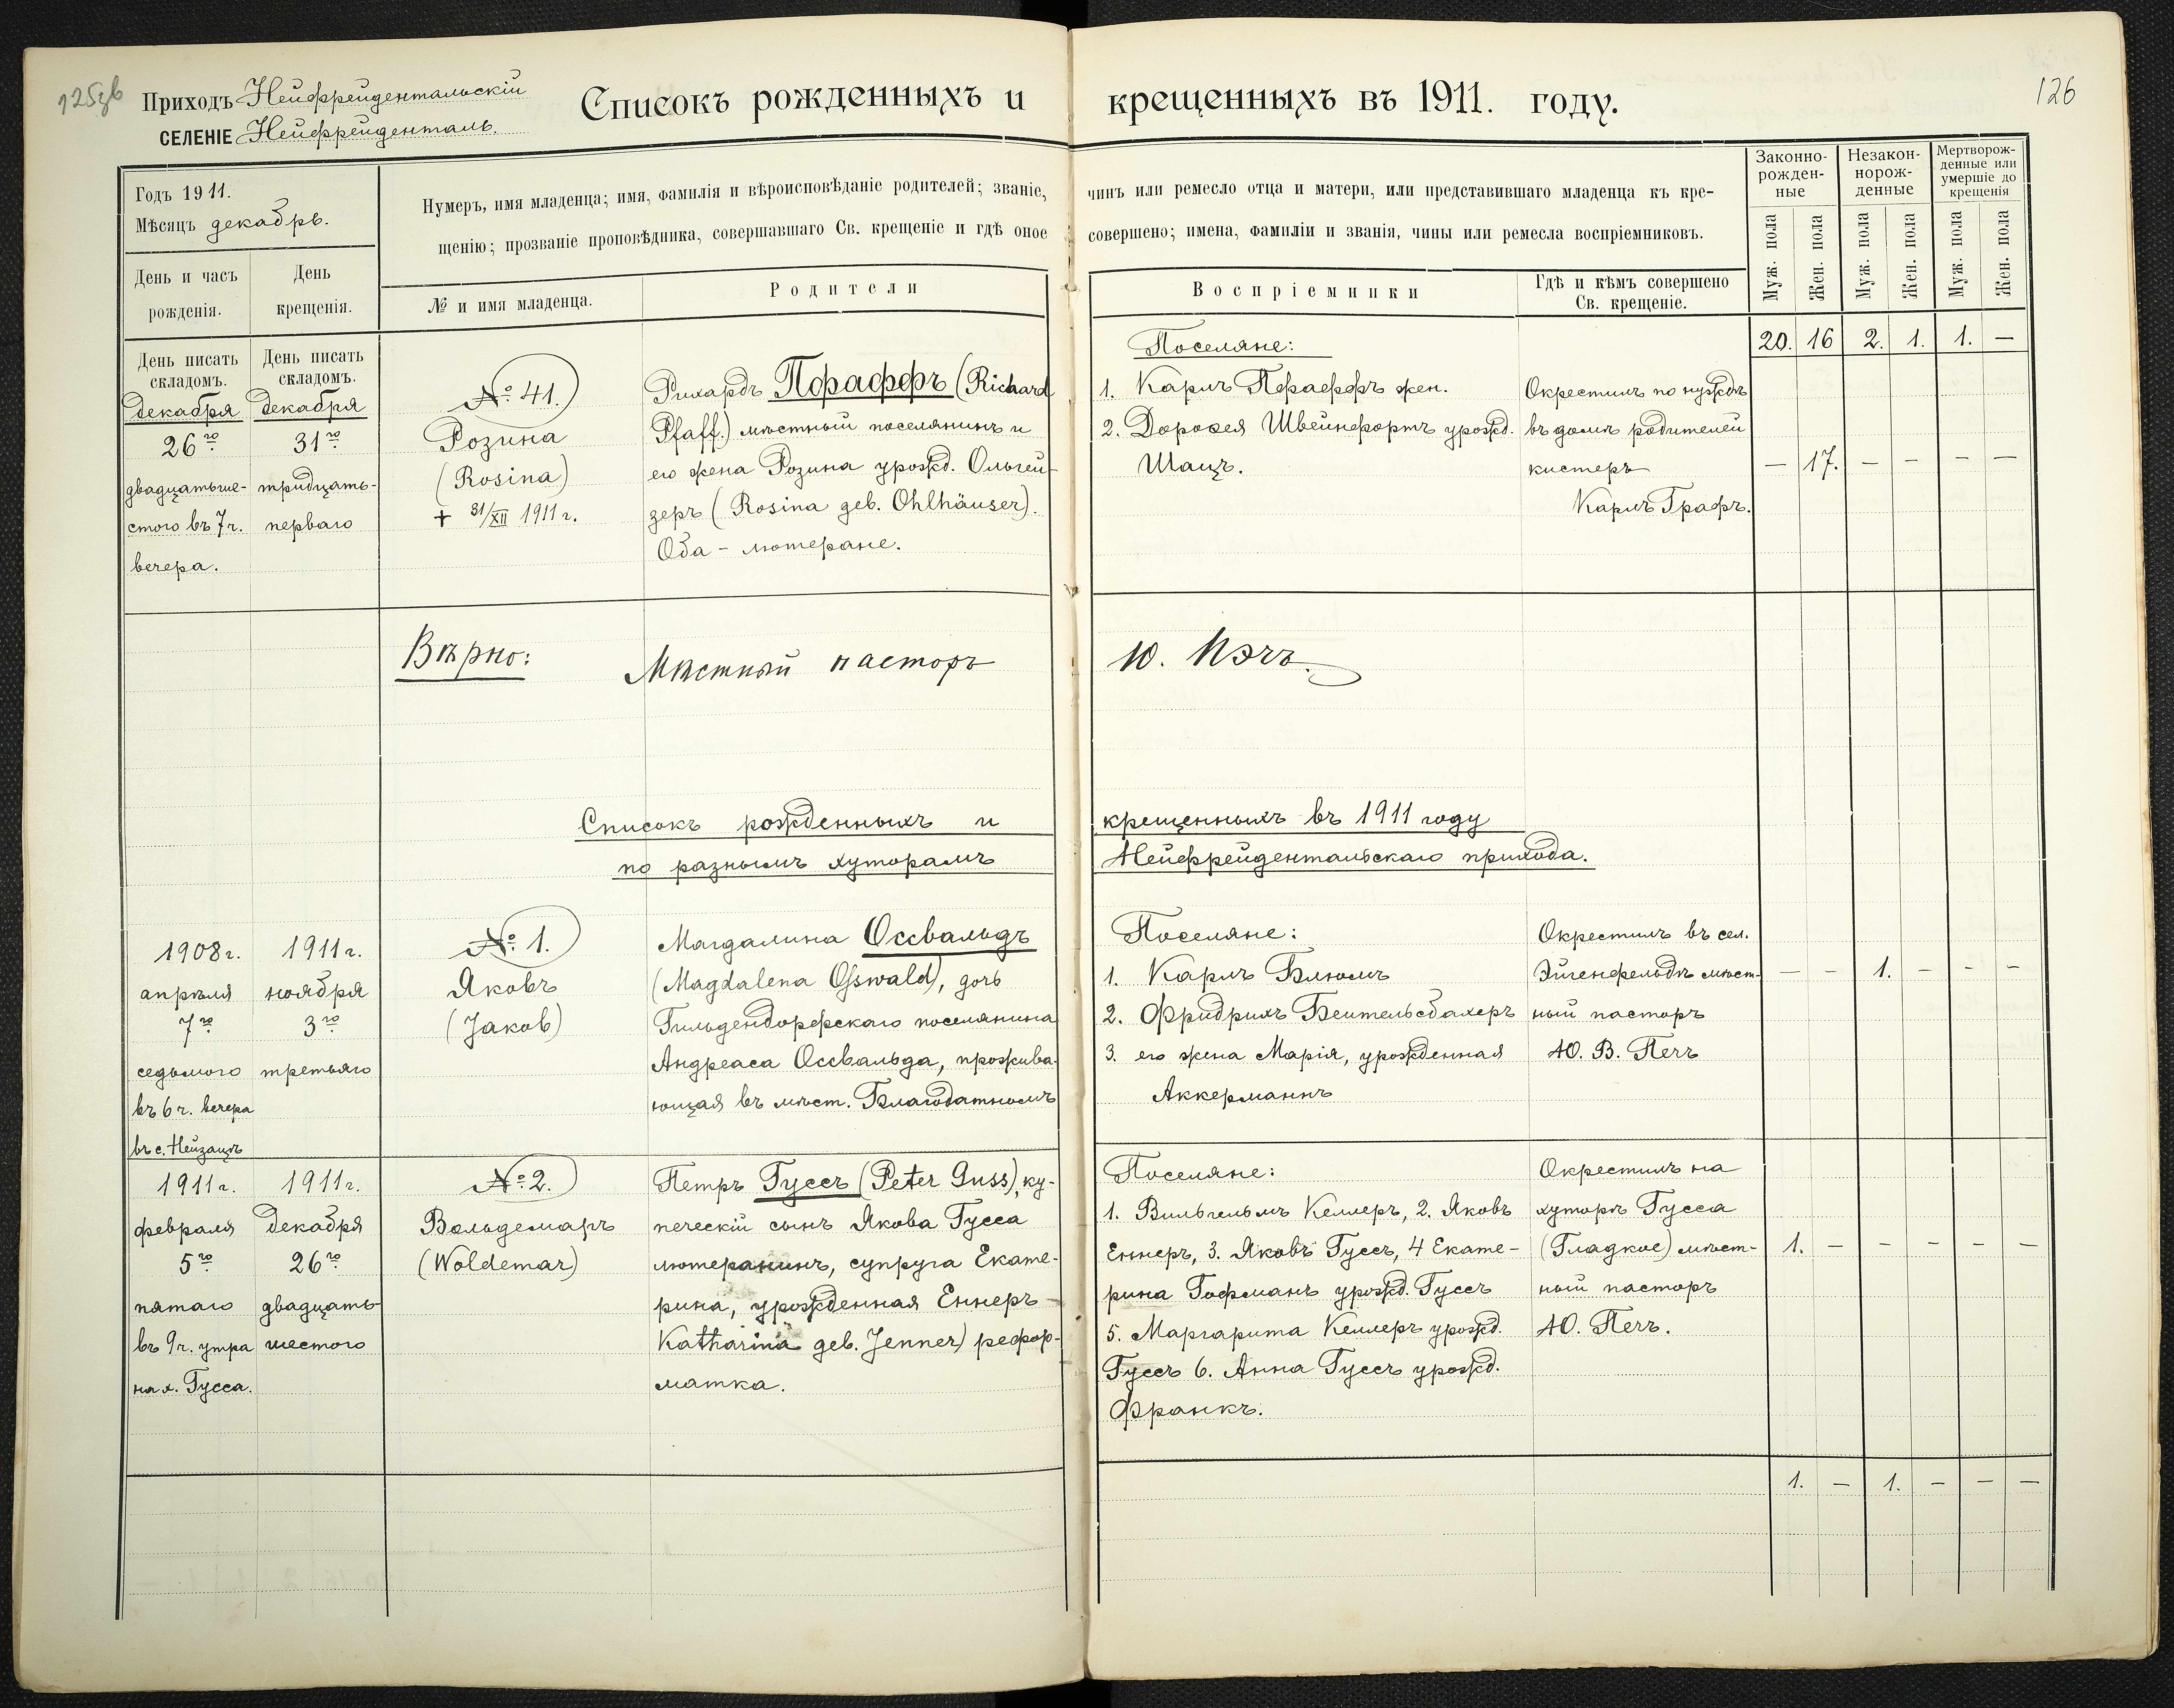 125зв
Приходъ Нейфрейдентальскій
СЕЛЕНІЕ Нейфрейденталь.
Списокъ рожденныхъ и крещенныхъ въ 1911. году.
126
Годъ 1911.
Мѣсяцъ декабрь.
Нумеръ, имя младенца; имя, фамилія и вѣроисповѣданіе родителей; званіе, чинъ или ремесло отца и матери, или представившаго младенца къ кре-
щенію; прозваніе проповѣдника, совершавшаго Св. крещеніе и гдѣ оное совершено; имена, фамиліи и званія, чины или ремесла воспріемниковъ.
Законно-
рожден-
ные
Незакон-
норож-
денные
Мертворож-
денные или
умершіе до
крещенія
Муж. пола
Жен. пола
Муж. пола
Жен. пола
Муж. пола
Жен. пола
День и часъ
рожденія.
День
крещенія.
№ и имя младенца.
Родители
Воспріемники
Гдѣ и кѣмъ совершено
Св. крещеніе.
20. 16 2. 1. 1. —
День писать
складомъ.
декабря
26го
двадцатьше-
стого въ 7 ч.
вечера.
День писать
складомъ.
декабря
31го
тридцать-
перваго
№ 41.
Розина
(Rosina)
+ 31/XII 1911 г.
Рихардъ Пфаффъ (Richard
Pfaff.) мѣстный поселянинъ и
его жена Розина урожд. Ольгей-
зеръ (Rosina geb. Ohlhäuser).
Оба - лютеране.
Поселяне:
1. Карлъ Пфаффъ жен.
2. Дорофея Швейнфортъ урожд.
Шацъ.
Окрестилъ по нуждѣ
въ домѣ родителей
кистеръ
Карлъ Графъ.
— 17. — — — —
Вѣрно: Мѣстный пасторъ Ю. Пэчъ.
Списокъ рожденныхъ и крещенныхъ въ 1911 году
по разнымъ хуторамъ Нейфрейдентальскаго прихода.
1908 г.
апрѣля
7го
седьмого
въ 6 ч. вечера
въ с. Нейзацъ
1911 г.
ноября
3го
третьяго
№ 1.
Яковъ
(Jakob)
Магдалина Оссвальдъ
(Magdalena Osswald), дочь
Гильдендорфскаго поселянина
Андреаса Оссвальда, прожива-
ющая въ мѣст. Благодатномъ
Поселяне:
1. Карлъ Блюмъ
2. Фридрихъ Бейтельсбахеръ
3. его жена Марія, урожденная
Аккерманнъ
Окрестилъ въ сел.
Эйгенфельдѣ мѣст-
ный пасторъ
Ю. В. Печъ
— — 1. — — —
1911 г.
февраля
5го
пятаго
въ 9 ч. утра
на х. Гусса.
1911 г.
декабря
26го
двадцать-
шестого
№ 2.
Вольдемаръ
(Woldemar)
Петръ Гуссъ (Peter Guss), ку-
печескій сынъ Якова Гусса
лютеранинъ, супруга Екате-
рина, урожденная Еннеръ
Katharina geb. Jenner) рефор-
матка.
Поселяне:
1. Вильгельмъ Келлеръ, 2. Яковъ
Еннеръ, 3. Яковъ Гуссъ, 4 Екате-
рина Гофманъ урожд. Гуссъ
5. Маргарита Келлеръ урожд.
Гуссъ 6. Анна Гуссъ урожд.
Франкъ.
Окрестилъ на
хуторѣ Гусса
(Гладкое) мѣст-
ный пасторъ
Ю. Печъ.
1. — — — — —
1. — 1. — — —